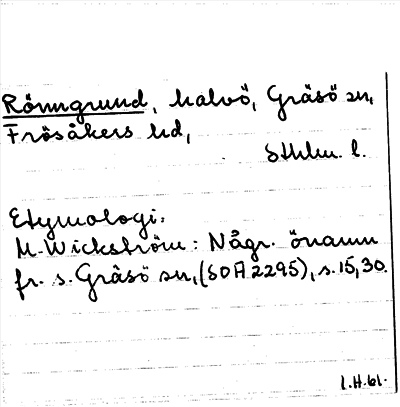 Rönngrund, halvö, Gräsö sn,
Frösåkers hd,
Sthlm. l.
Etymologi:
M. Wickström: Någr. önamn
fr. s. Gräsö sn, (SOA 2295), s. 15, 30.
I.H. 61.